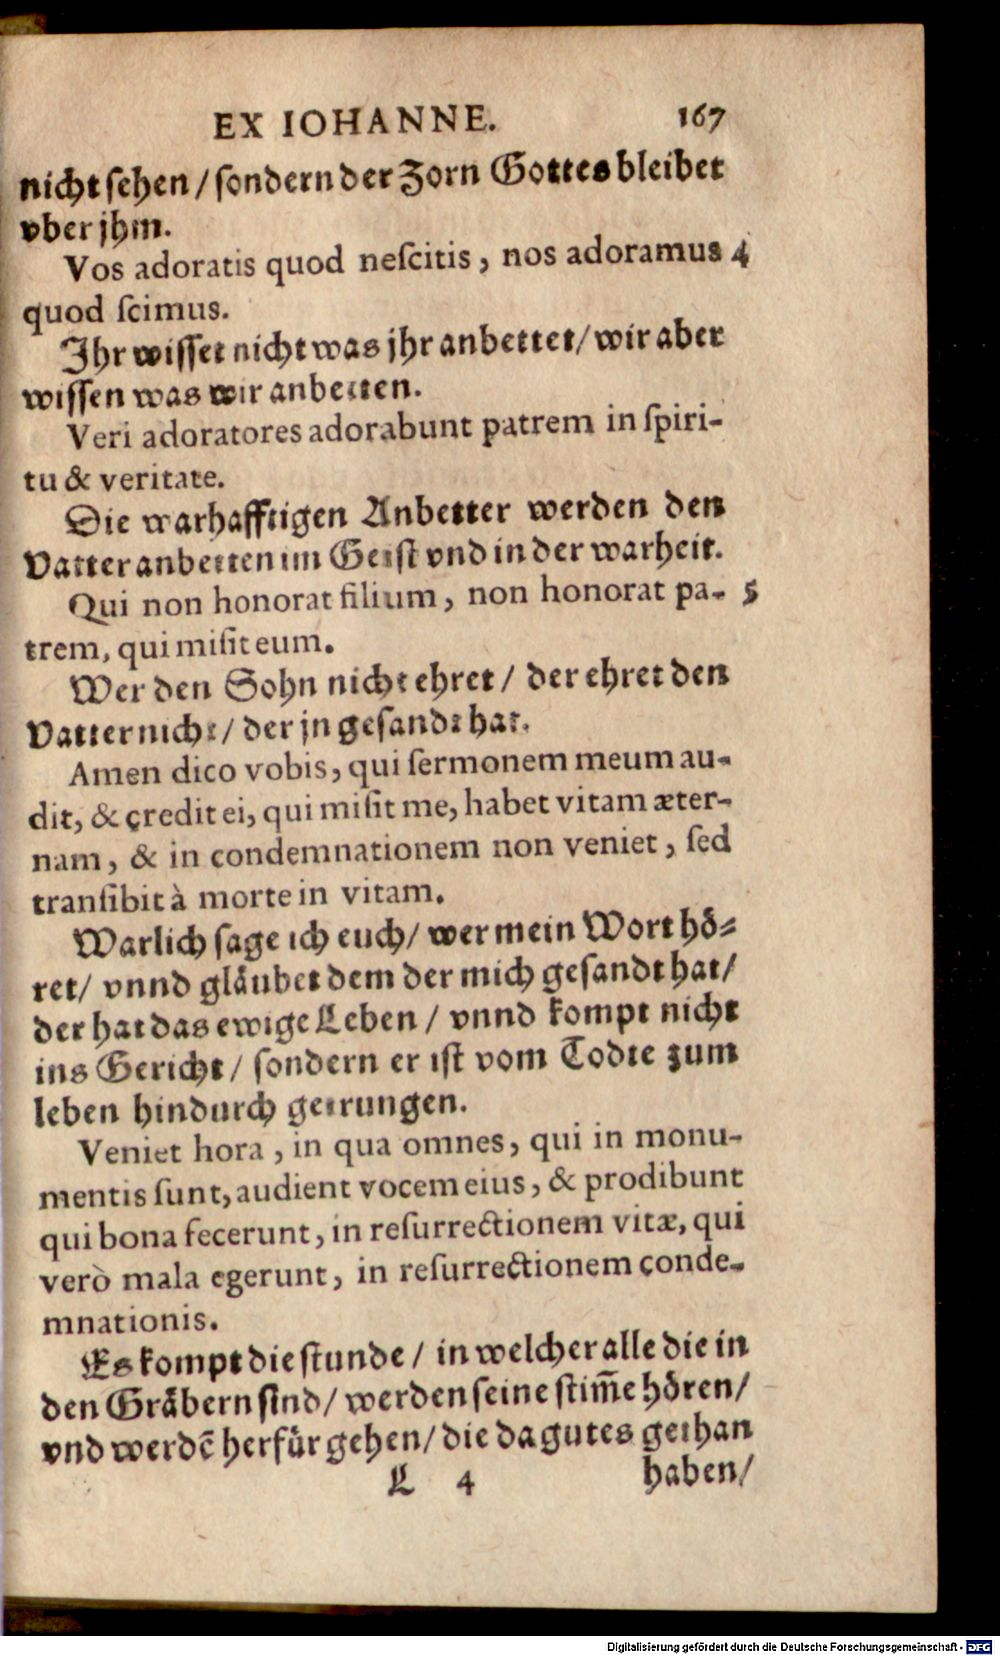 EX IOHANNE. 167
nicht sehen / sondern der Zorn Gottes bleibet
vber jhm.
Vos adoratis quod neſcitis, nos adoramus 4
quod ſcimus.
Ihr wiſſet nicht was jhr anbettet / wir aber
wiſſen was wir anbetten.
Veri adoratores adorabunt patrem in ſpiri-
tu & veritate.
Die warhafftigen Anbetter werden den
Vatter anbetten im Geiſt vnd in der warheit.
Qui non honorat filium, non honorat pa- 5
trem, qui miſit eum.
Wer den Sohn nicht ehret / der ehret den
Vatter nicht / der jn geſandt hat.
Amen dico vobis, qui ſermonem meum au-
dit, & credit ei, qui miſit me, habet vitam æter-
nam, & in condemnationem non veniet, ſed
tranſibit à morte in vitam.
Warlich ſage ich euch / wer mein Wort hö-
ret / vnnd gläubet dem der mich geſandt hat /
der hat das ewige Leben / vnnd kompt nicht
ins Gericht / ſondern er iſt vom Todte zum
leben hindurch getrungen.
Veniet hora, in qua omnes, qui in monu-
mentis ſunt, audient vocem eius, & prodibunt
qui bona fecerunt, in reſurrectionem vitæ, qui
verò mala egerunt, in reſurrectionem conde-
mnationis.
Es kompt die ſtunde / in welcher alle die in
den Gräbern ſind / werden ſeine ſtim̃e hören /
vnd werdẽ herfür gehen / die da gutes gethan
L 4 haben /
Digitalisierung gefördert durch die Deutsche Forschungsgemeinschaft - DFG